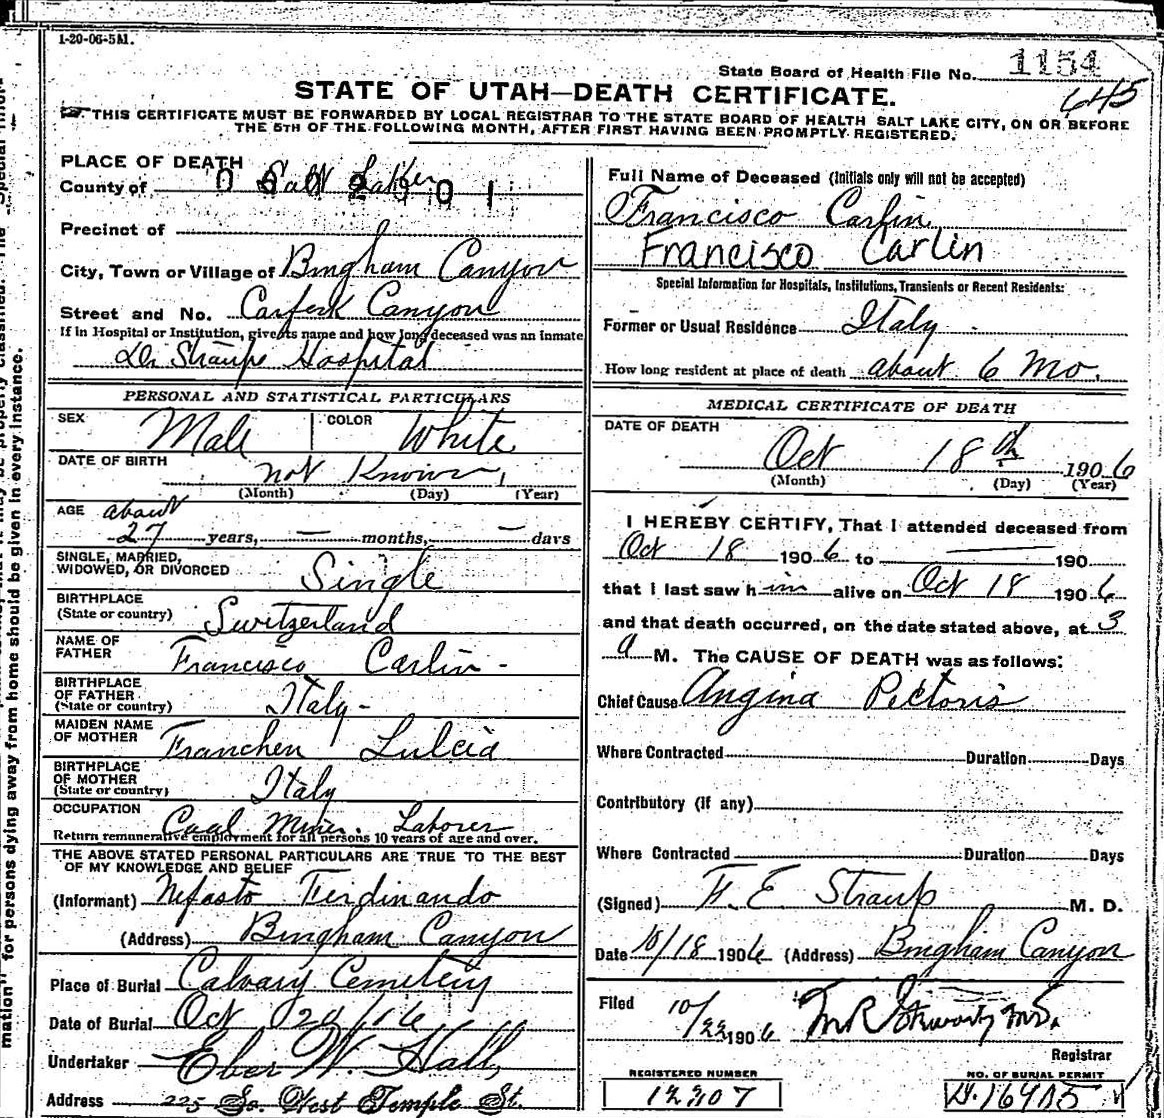 1-20-06-5M.
State Board of Health File No. 1154
645
STATE OF UTAH—DEATH CERTIFICATE.
THIS CERTIFICATE MUST BE FORWARDED BY LOCAL REGISTRAR TO THE STATE BOARD OF HEALTH SALT LAKE CITY, ON OR BEFORE
THE 5TH OF THE FOLLOWING MONTH, AFTER FIRST HAVING BEEN PROMPTLY REGISTERED.
PLACE OF DEATH
County of Salt Lake
Precinct of
City, Town or Village of Bingham Canyon
Street and No. Carferk Canyon
If in Hospital or Institution, give its name and how long deceased was an inmate
Dr Straupe Hospital
PERSONAL AND STATISTICAL PARTICULARS
SEX Male COLOR White
DATE OF BIRTH not Known
(Month) (Day) (Year)
AGE about
27 years, — months, — days
SINGLE, MARRIED,
WIDOWED, OR DIVORCED Single
BIRTHPLACE
(State or country) Switzerland
NAME OF
FATHER Francisco Carlin
BIRTHPLACE
OF FATHER
(State or country) Italy
MAIDEN NAME
OF MOTHER Franchen Lulcia
BIRTHPLACE
OF MOTHER
(State or country) Italy
OCCUPATION Coal Miner. Laborer
Return remunerative employment for all persons 10 years of age and over.
THE ABOVE STATED PERSONAL PARTICULARS ARE TRUE TO THE BEST
OF MY KNOWLEDGE AND BELIEF
(Informant) Nefasto Ferdinando
(Address) Bingham Canyon
Place of Burial Calvary Cemetery
Date of Burial Oct
Undertaker Eber W. Hall
Address 225 So. West Temple St.
Full Name of Deceased (Initials only will not be accepted)
Francisco Carlin
Francisco Carlin
Special Information for Hospitals, Institutions, Transients or Recent Residents:
Former or Usual Residence Italy
How long resident at place of death about 6 Mo.
MEDICAL CERTIFICATE OF DEATH
DATE OF DEATH
Oct 18th 1906
(Month) (Day) (Year)
I HEREBY CERTIFY, That I attended deceased from
Oct 18 1906 to — 190
that I last saw him alive on Oct 18 1906
and that death occurred, on the date stated above, at 3
a M. The CAUSE OF DEATH was as follows:
Chief Cause Angina Pectoris
Where Contracted Duration Days
Contributory (if any)
Where Contracted Duration Days
(Signed) F. E. Straup M. D.
Date 10/18 1906 (Address) Bingham Canyon
Filed 10/22 1906
Registrar
REGISTERED NUMBER
12207
NO. OF BURIAL PERMIT
mation" for persons dying away from home should be given in every instance.